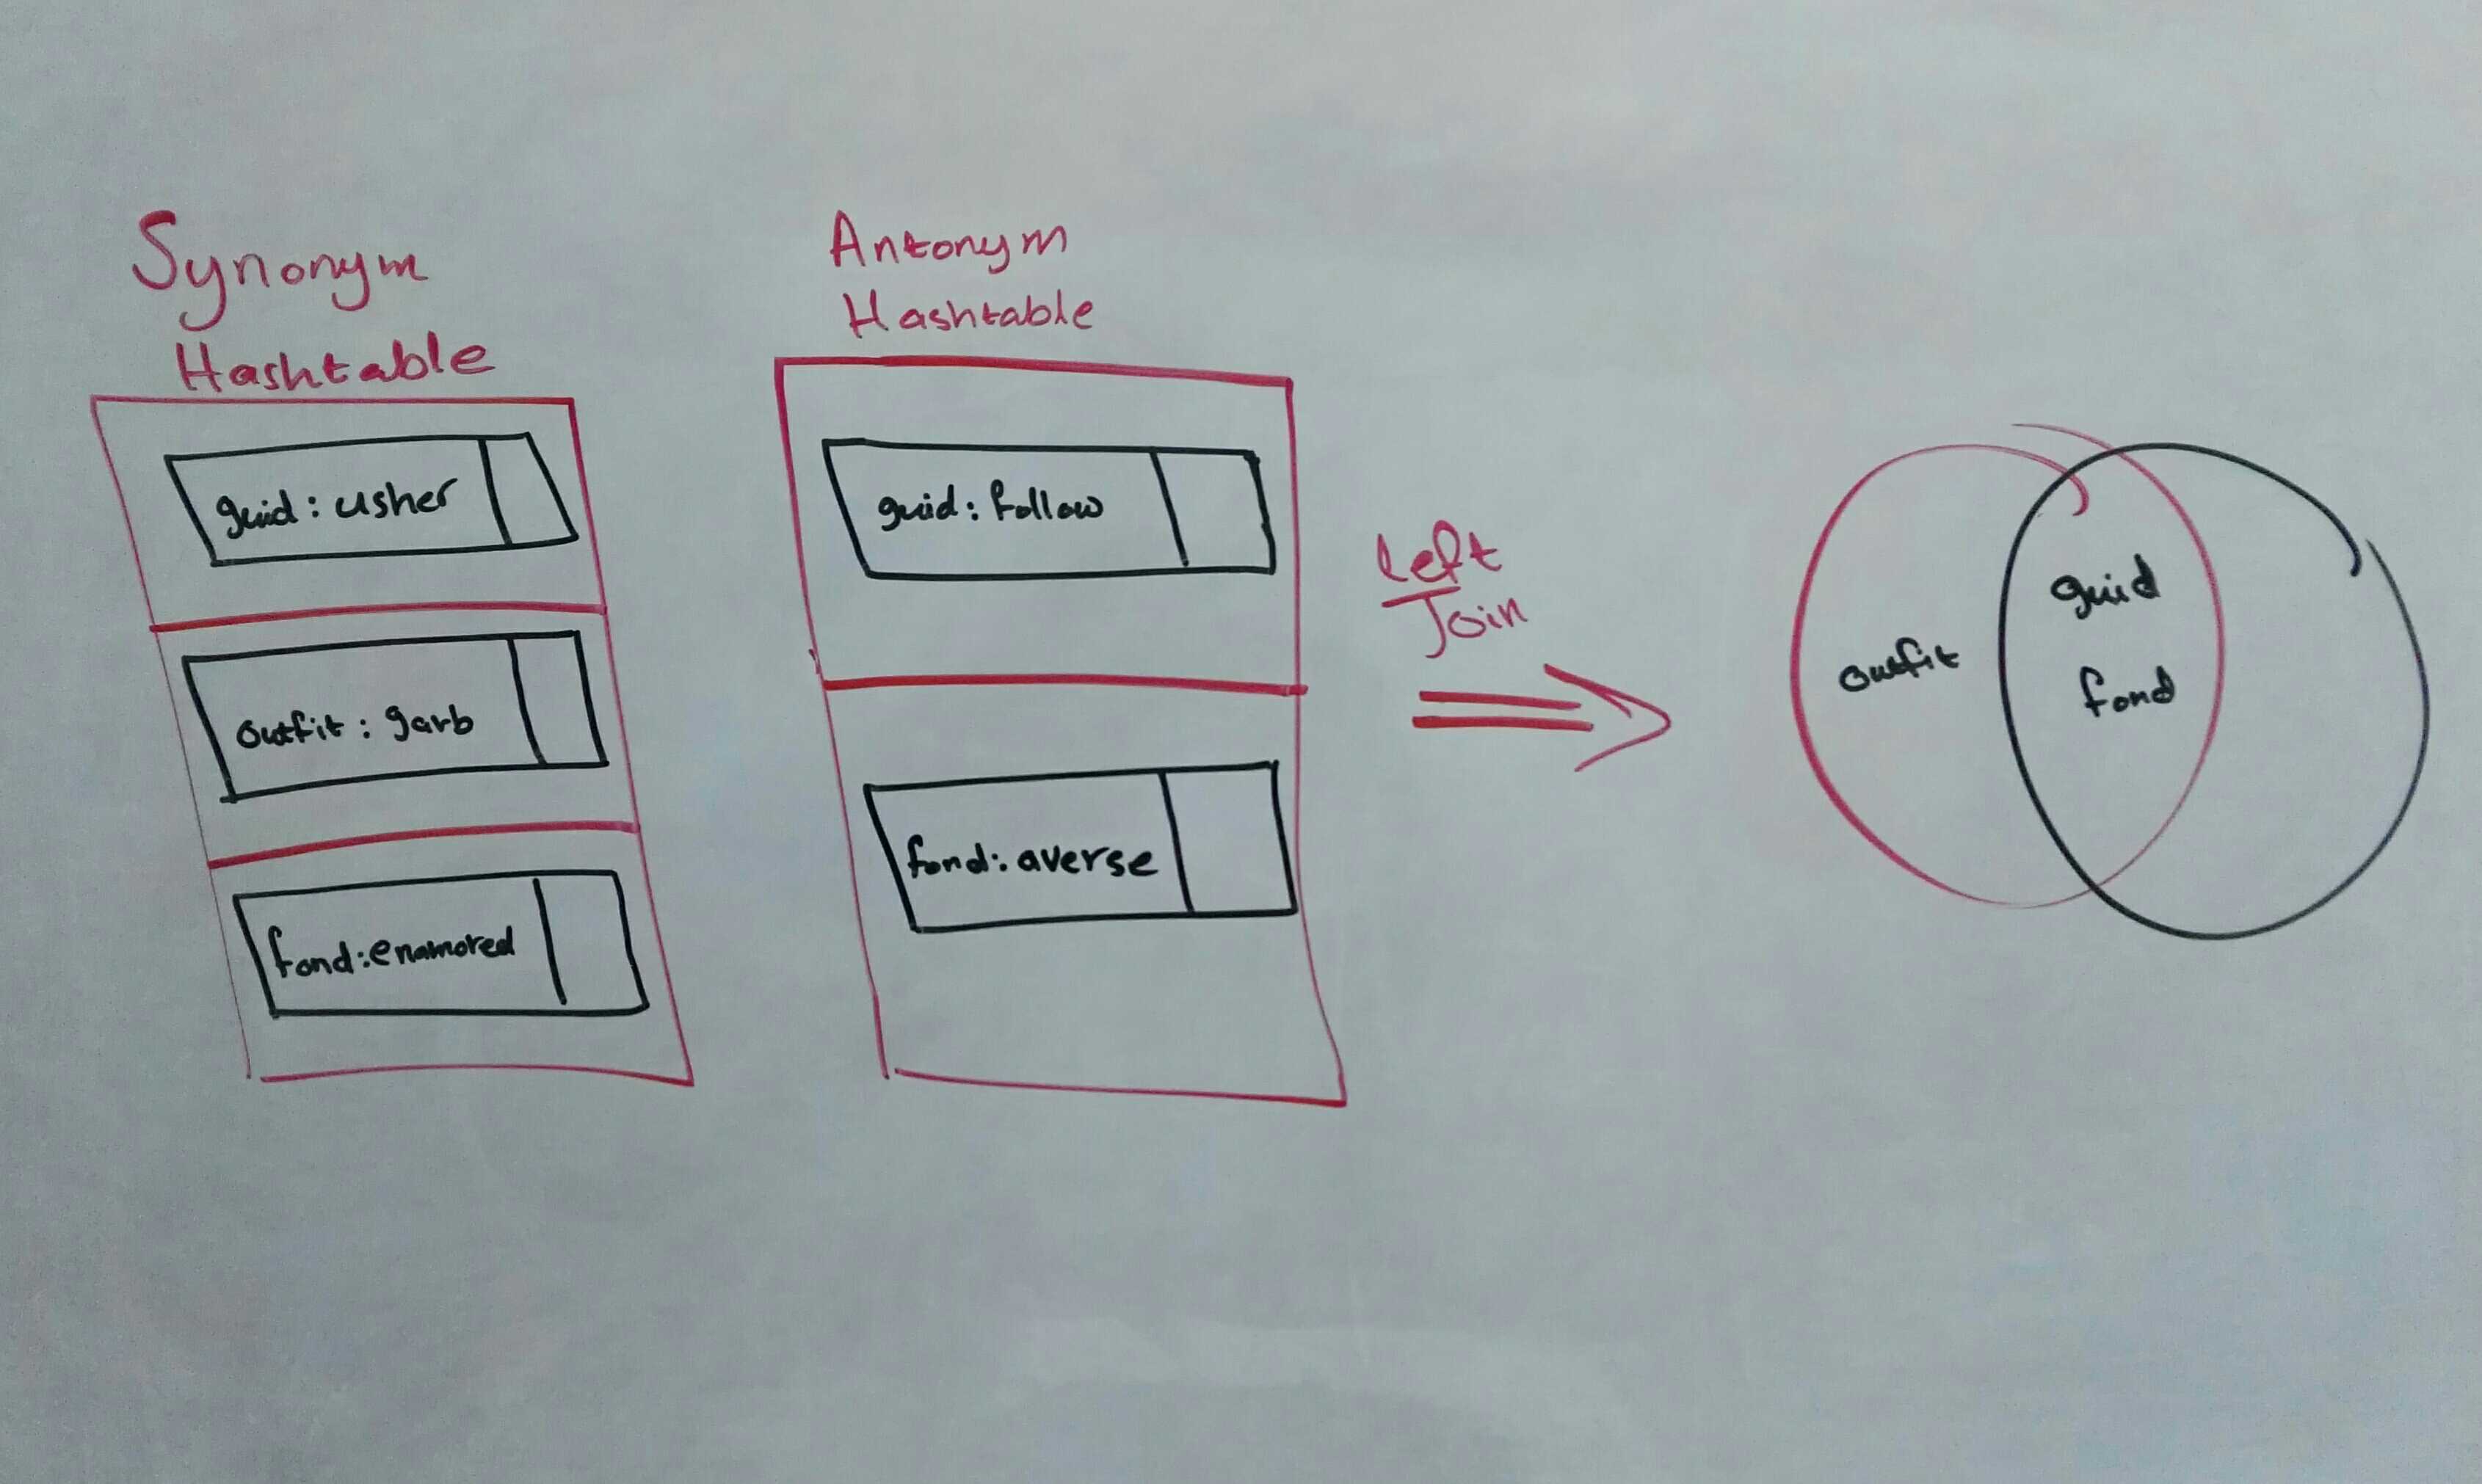 Synonym
Hashtable
guid: usher
outfit: garb
fond: enamored
Antonym
Hashtable
guid: follow
fond: averse
Left
Join
outfit
guid
fond